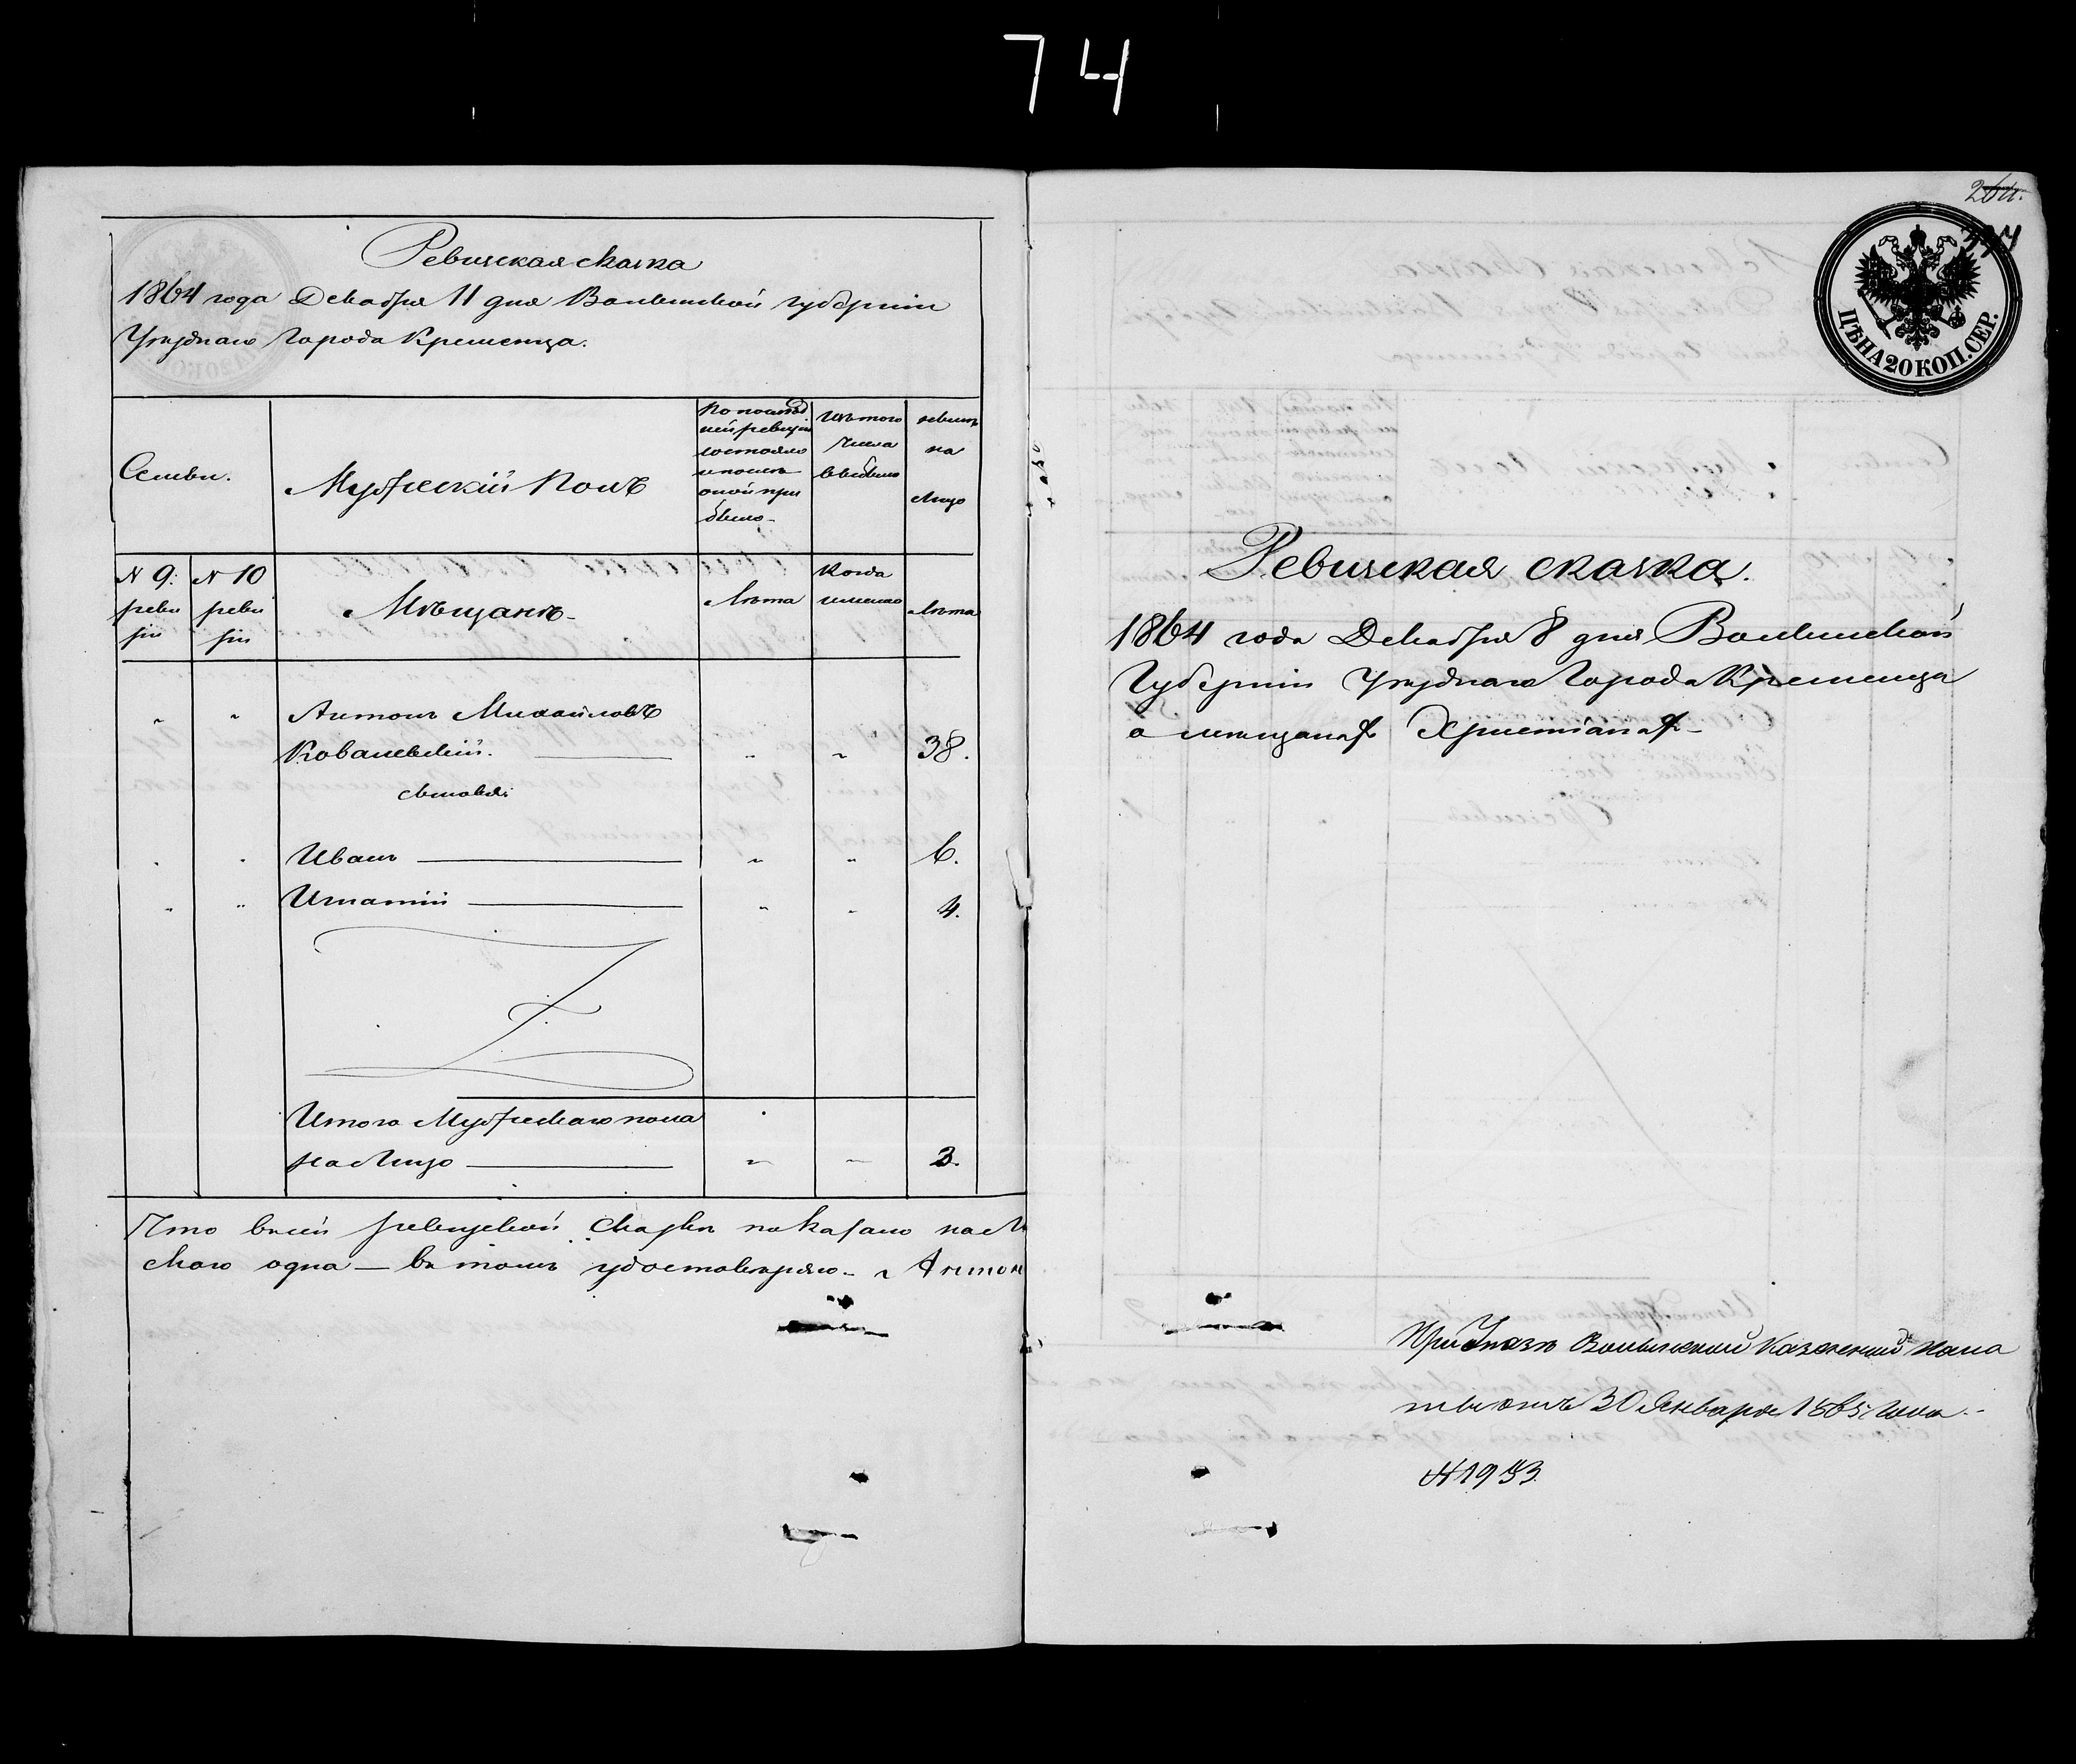 74
Ревизская сказка
1864 года Декабря 11 дня Волынской губерніи
Уѣзднаго Города Кременца.
Семьи.
Мужескій Полъ
По послѣд
ней ревизіи
состояло
и послѣ
оной при
было
Изъ того
числа
выбыло
нынѣ
на
лицо
N 9.
реви
зіи
N 10
реви
зіи
Мѣщане
Лѣта
Когда
именно
Лѣта
Антонъ Михайловъ
Ковалевскій. 38.
сыновья:
Иванъ 6.
Игнатій 4.
Итого Мужескаго пола
на Лицо 3.
Что въ сей ревизской сказкѣ показано на
скаго одна — въ томъ удостовѣряю Антон
264.
ЦѢНА 20 КОП. СЕР.
Ревизская сказка.
1864 года Декабря 8 дня Волынской
Губерніи Уѣзднаго Города Кременца
о мѣщанах Христіанах
При Указѣ Волынской Казенной Пала
ты отъ 30 Января 1865 года
N 1933